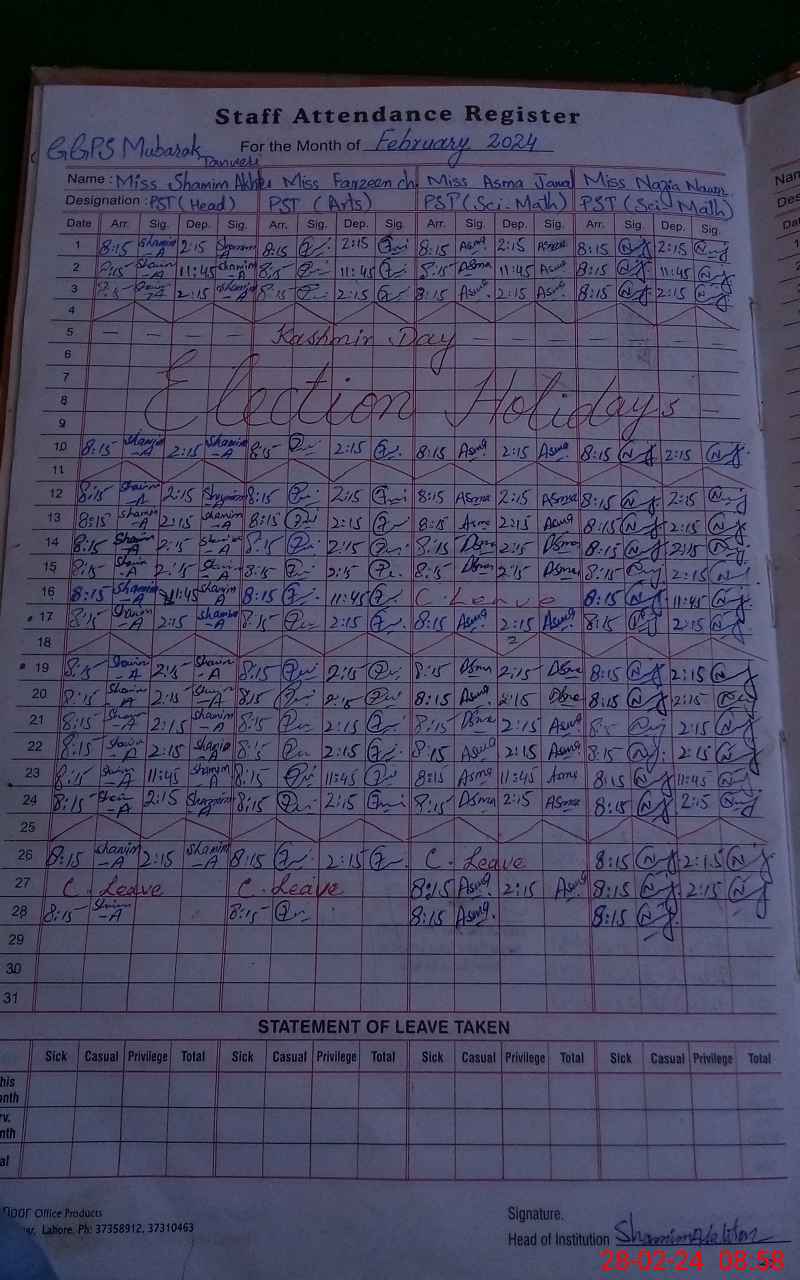 Staff Attendance Register
GGPS Mubarak For the Month of February 2024
Name : Miss Shamim Akhter Miss Farzeen ch. Miss Asma Jawad Miss Nazia
Designation : PST (Head) PST (Arts) PST (Sci-Math) PST (Sci-Math)
Date Arr. Sig. Dep. Sig. Arr. Sig. Dep. Sig. Arr. Sig. Dep. Sig. Arr. Sig. Dep. Sig.
1 8:15 Shamim -A 2:15 Shamim -A 8:15 2:15 8:15 Asma 2:15 Asma 8:15 2:15
2 8:15 Shamim -A 11:45 Shamim -A 8:15 11:45 8:15 Asma 11:45 Asma 8:15 11:45
3 8:15 2:15 Shamim 8:15 2:15 8:15 Asma 2:15 Asma 8:15 2:15
4
5 — — — — Kashmir Day — — — — — —
6
7
8 Election Holidays —
9
10 8:15 Shamim -A 2:15 Shamim -A 8:15 2:15 8:15 Asma 2:15 Asma 8:15 2:15
11
12 8:15 Shamim -A 2:15 Shamim 8:15 2:15 8:15 Asma 2:15 Asma 8:15 2:15
13 8:15 Shamim -A 2:15 Shamim -A 8:15 2:15 8:15 Asma 2:15 Asma 8:15 2:15
14 8:15 Shamim -A 2:15 Shamim -A 8:15 2:15 8:15 Asma 2:15 Asma 8:15 2:15
15 8:15 Shamim -A 2:15 Shamim -A 8:15 2:15 8:15 Asma 2:15 Asma 8:15 2:15
16 8:15 Shamim -A 11:45 Shamim -A 8:15 11:45 C. Leave 8:15 11:45
17 8:15 Shamim -A 2:15 Shamim 8:15 2:15 8:15 Asma 2:15 Asma 8:15 2:15
18
19 8:15 Shamim -A 2:15 Shamim -A 8:15 2:15 8:15 Asma 2:15 Asma 8:15 2:15
20 8:15 Shamim -A 2:15 Shamim -A 8:15 2:15 8:15 Asma 2:15 Asma 8:15 2:15
21 8:15 Shamim -A 2:15 Shamim -A 8:15 2:15 8:15 Asma 2:15 Asma 8:15 2:15
22 8:15 Shamim -A 2:15 Shamim -A 8:15 2:15 8:15 Asma 2:15 Asma 8:15 2:15
23 8:15 Shamim -A 11:45 Shamim -A 8:15 11:45 8:15 Asma 11:45 Asma 8:15 11:45
24 8:15 Shamim -A 2:15 Shamim -A 8:15 2:15 8:15 Asma 2:15 Asma 8:15 2:15
25
26 8:15 Shamim -A 2:15 Shamim -A 8:15 2:15 C. Leave 8:15 2:15
27 C. Leave C. Leave 8:15 Asma 2:15 Asma 8:15 2:15
28 8:15 Shamim -A 8:15 8:15 Asma 8:15
29
30
31
STATEMENT OF LEAVE TAKEN
Sick Casual Privilege Total Sick Casual Privilege Total Sick Casual Privilege Total Sick Casual Privilege Total
Office Products
Lahore. Ph: 37358912, 37310463
Signature.
Head of Institution Shamim Akhtar
28-02-24 08:58